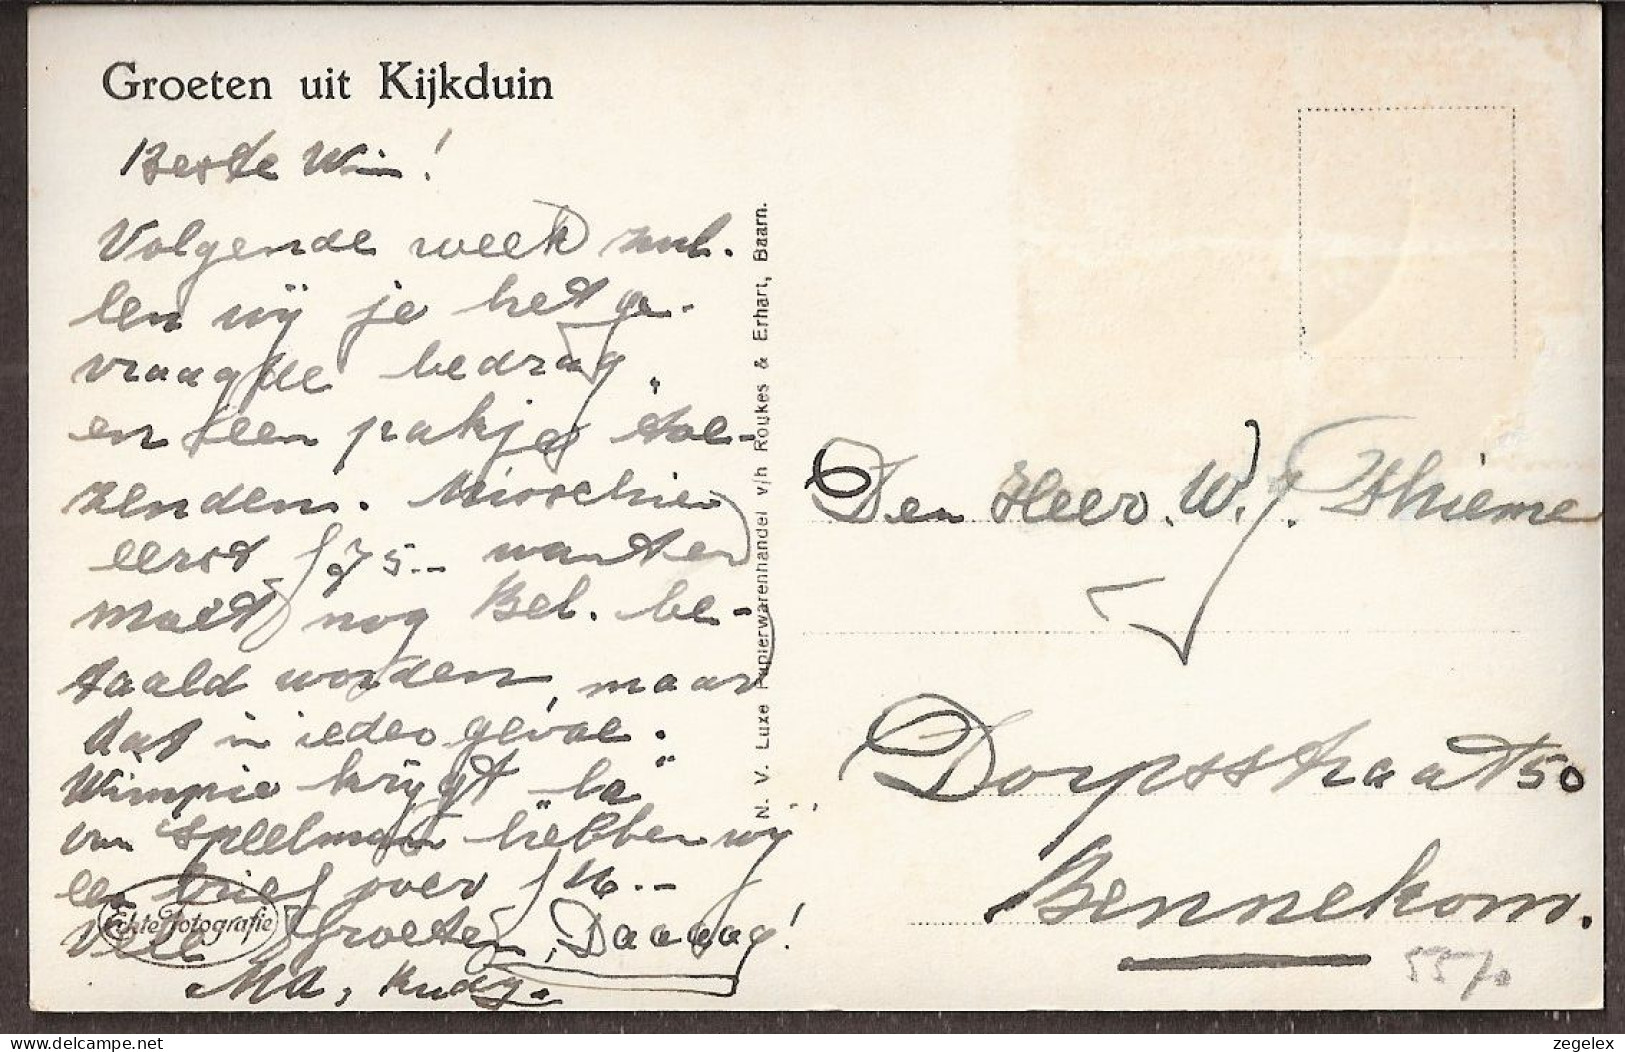 Groeten uit Kijkduin
Beste Wim!
Volgende week zul-
len wij je het ge-
vraagde bedrag
en een pakje toe-
zenden. Misschien
eerst f 75.- want er
moet nog Bel. be-
taald worden, maar
dat in ieder geval.
Wimpie krijgt "la"
van Speelman hebben wij
een brief over f 16.--
Echte Fotografie
Veel Groeten, Daaaag!
Ma, Rudy.
N. V. Luxe Papierwarenhandel v/h Roukes & Erhart, Baarn.
Den Heer. W. J. Thieme
Dorpsstraat 50
Bennekom.
zegelex